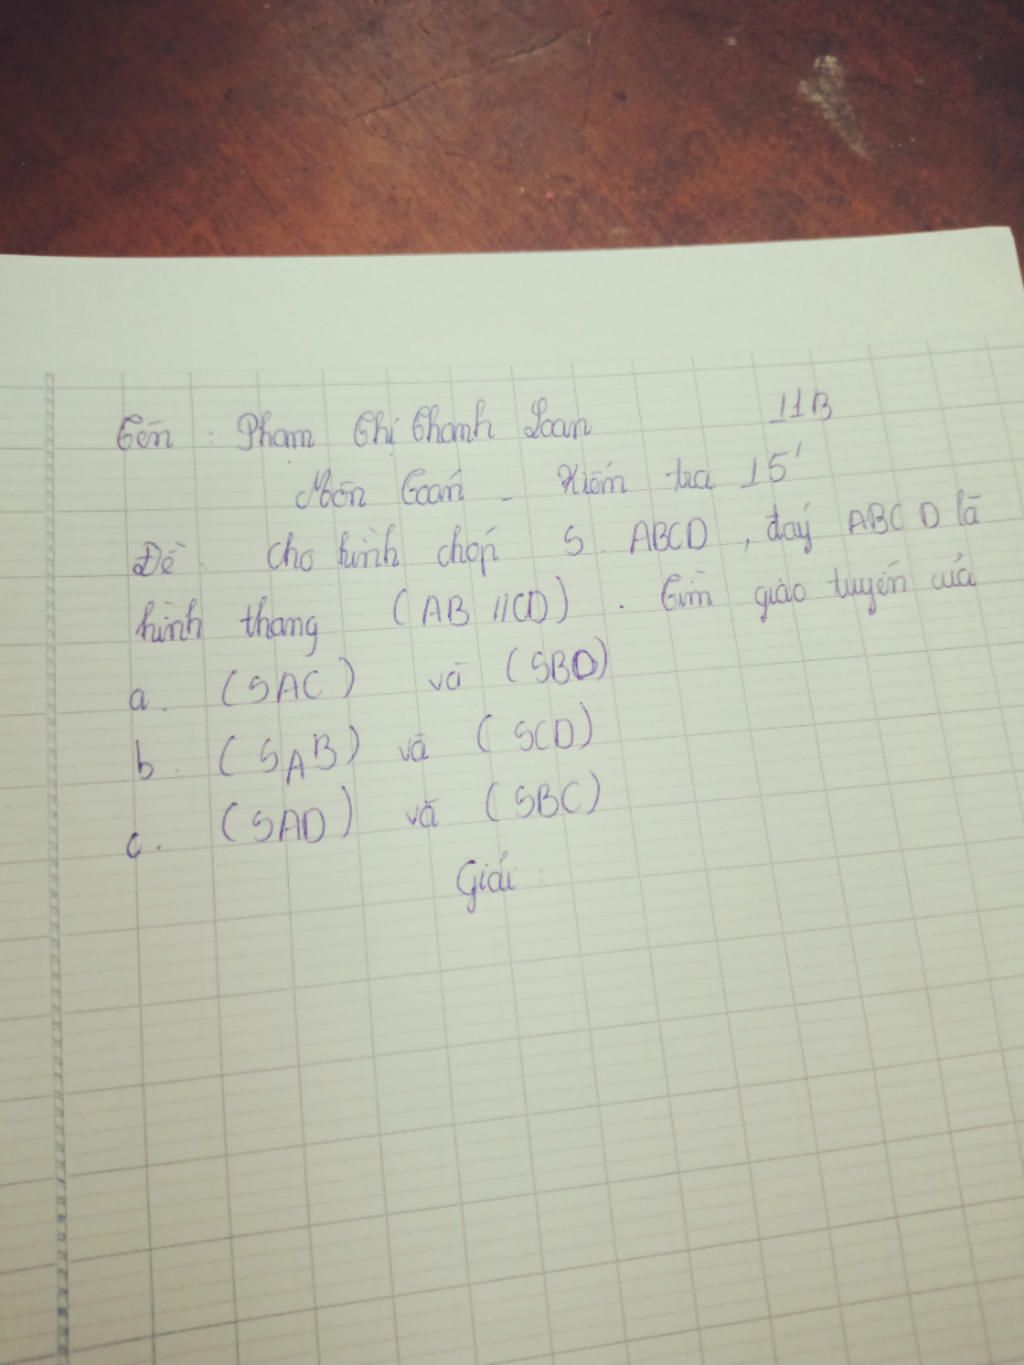 Tên : Phạm Thị Thanh Loan 11B
Môn Toán - Kiểm tra 15'
Đề : Cho hình chóp S.ABCD , đáy ABCD là
hình thang (AB//CD) . Tìm giao tuyến của
a. (SAC) và (SBD)
b. (SAB) và (SCD)
c. (SAD) và (SBC)
Giải :